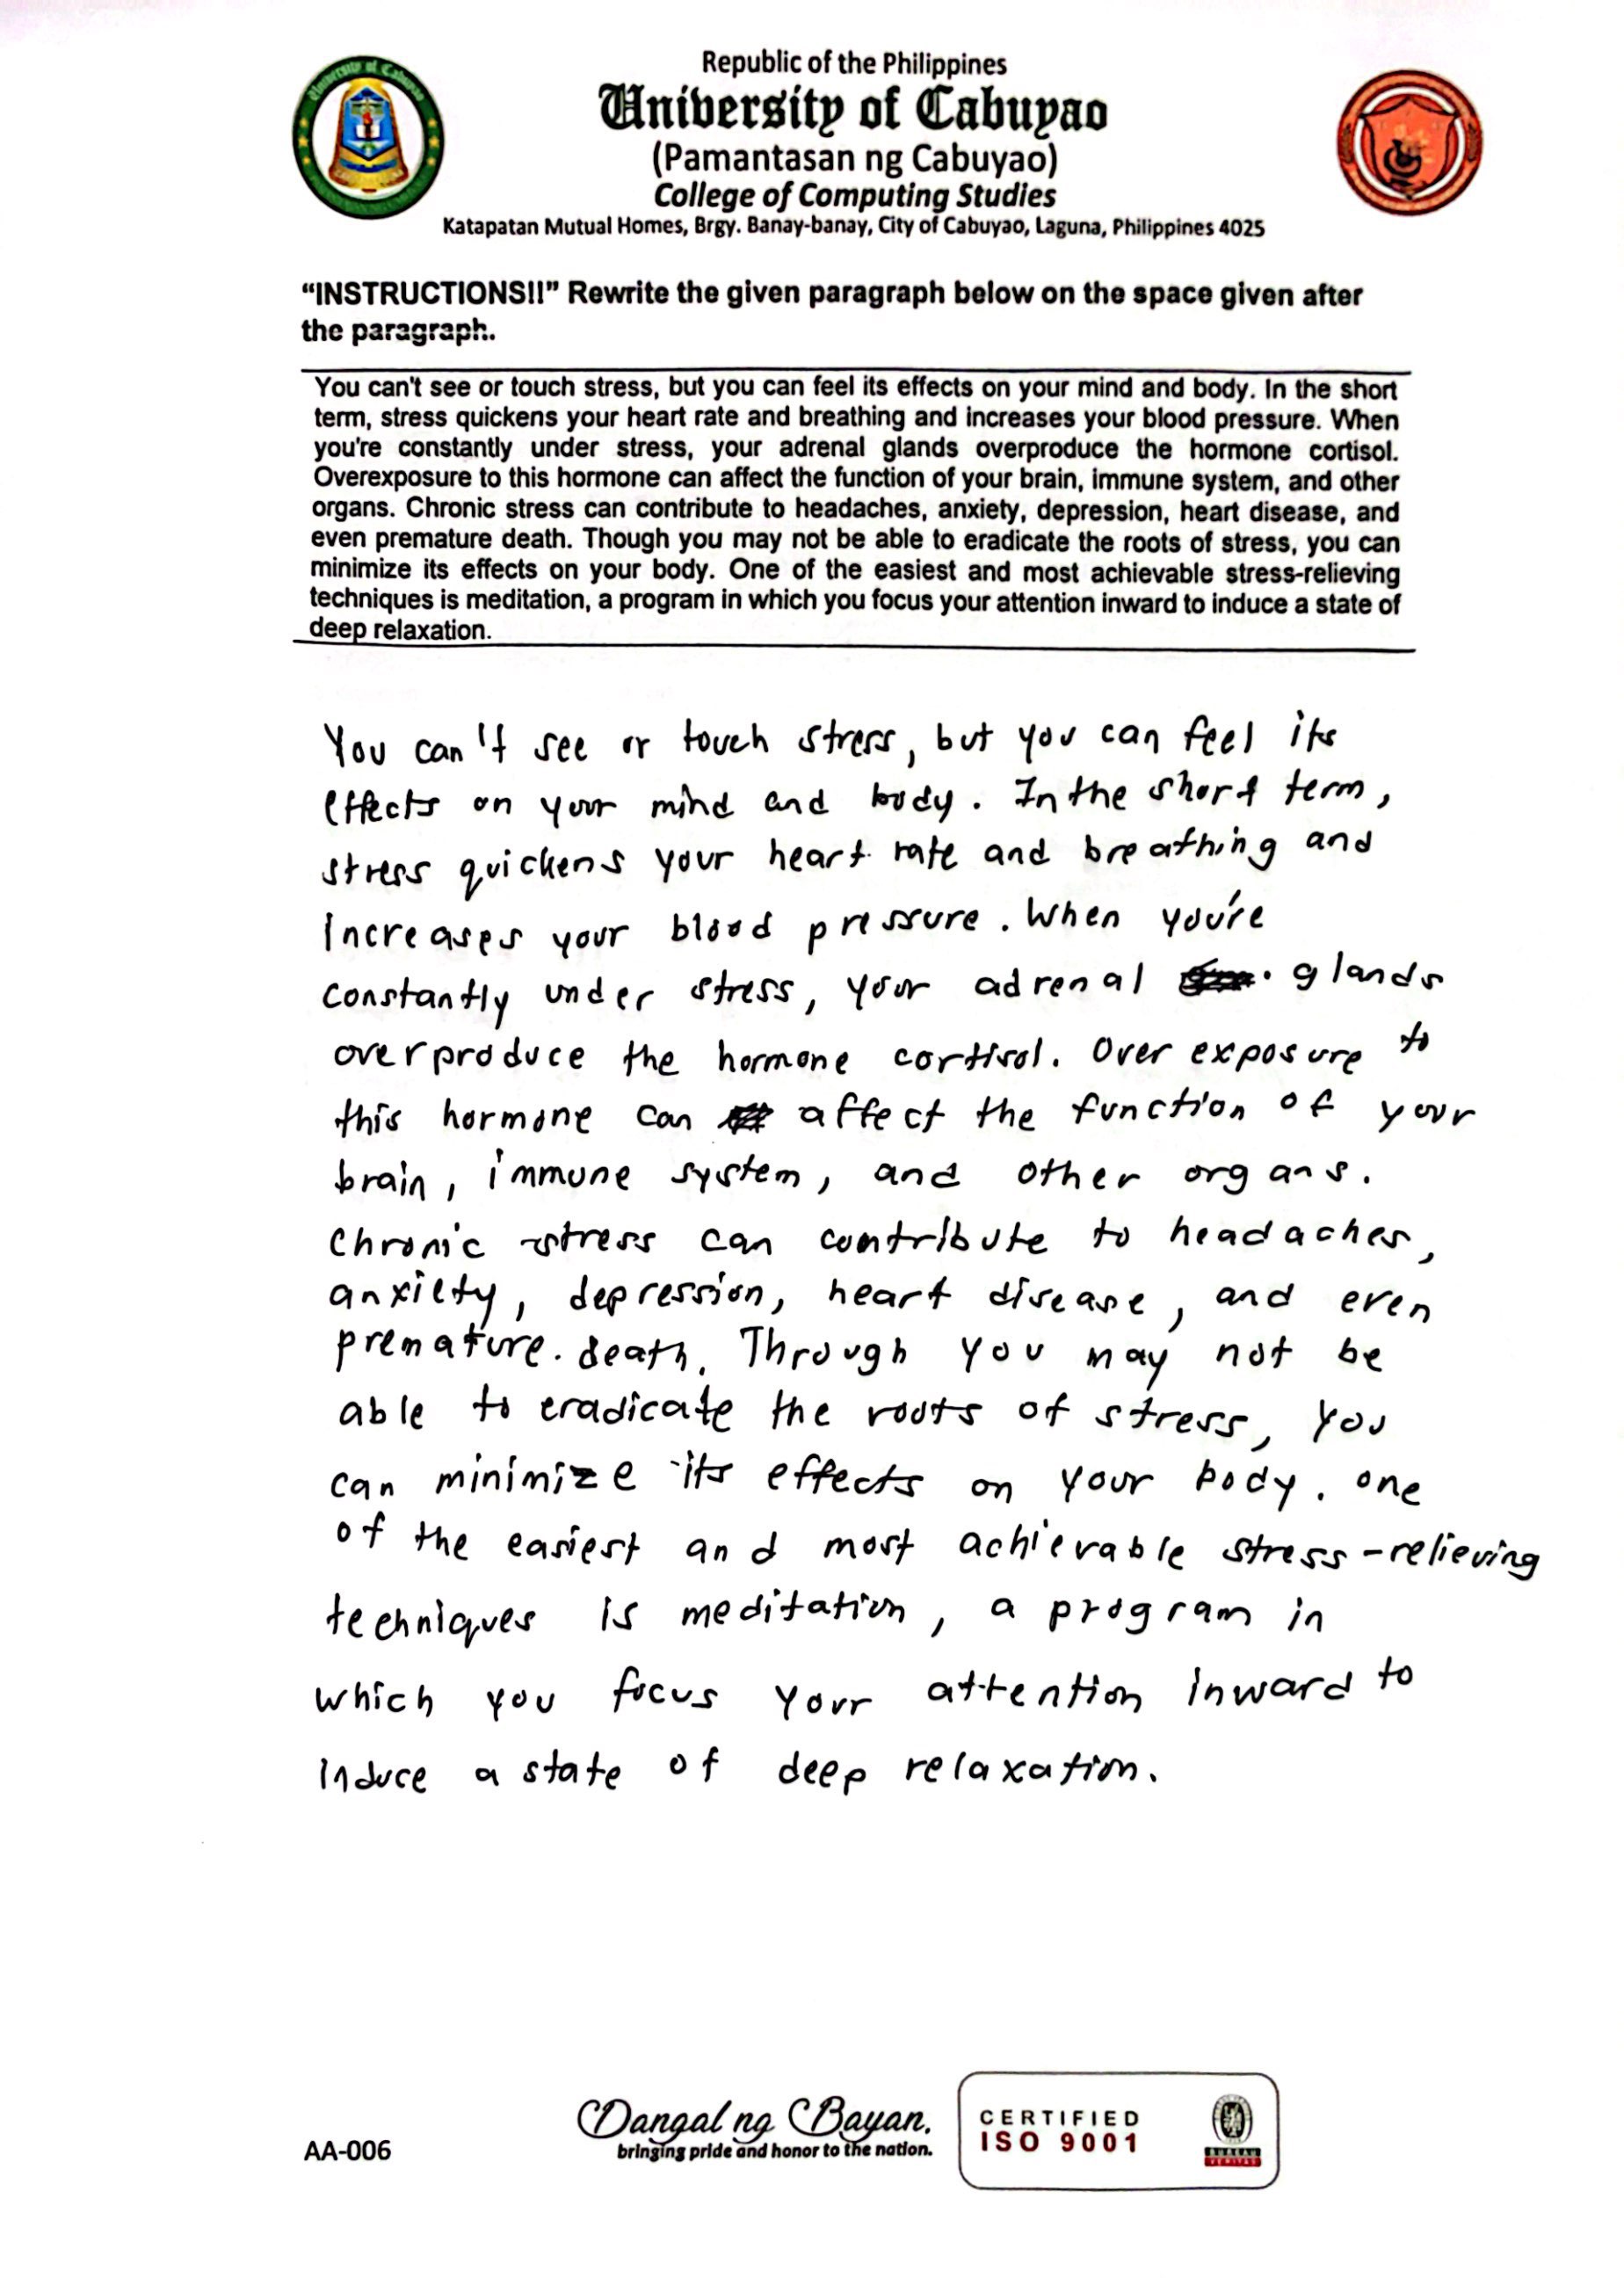 Republic of the Philippines
University of Cabuyao
(Pamantasan ng Cabuyao)
College of Computing Studies
Katapatan Mutual Homes, Brgy. Banay-banay, City of Cabuyao, Laguna, Philippines 4025
University of Cabuyao
“INSTRUCTIONS!!” Rewrite the given paragraph below on the space given after
the paragraph.
You can't see or touch stress, but you can feel its effects on your mind and body. In the short
term, stress quickens your heart rate and breathing and increases your blood pressure. When
you're constantly under stress, your adrenal glands overproduce the hormone cortisol.
Overexposure to this hormone can affect the function of your brain, immune system, and other
organs. Chronic stress can contribute to headaches, anxiety, depression, heart disease, and
even premature death. Though you may not be able to eradicate the roots of stress, you can
minimize its effects on your body. One of the easiest and most achievable stress-relieving
techniques is meditation, a program in which you focus your attention inward to induce a state of
deep relaxation.
You can't see or touch stress, but you can feel its
effects on your mind and body. In the short term,
stress quickens your heart rate and breathing and
increases your blood pressure. When you're
constantly under stress, your adrenal glands
overproduce the hormone cortisol. Over exposure to
this hormone can affect the function of your
brain, immune system, and other organs.
Chronic stress can contribute to headaches,
anxiety, depression, heart disease, and even
premature. death. Through you may not be
able to eradicate the roots of stress, you
can minimize its effects on your body. one
of the easiest and most achievable stress-relieving
techniques is meditation, a program in
which you focus your attention inward to
induce a state of deep relaxation.
AA-006
Dangal ng Bayan.
bringing pride and honor to the nation.
CERTIFIED
ISO 9001
BUREAU
VERITAS